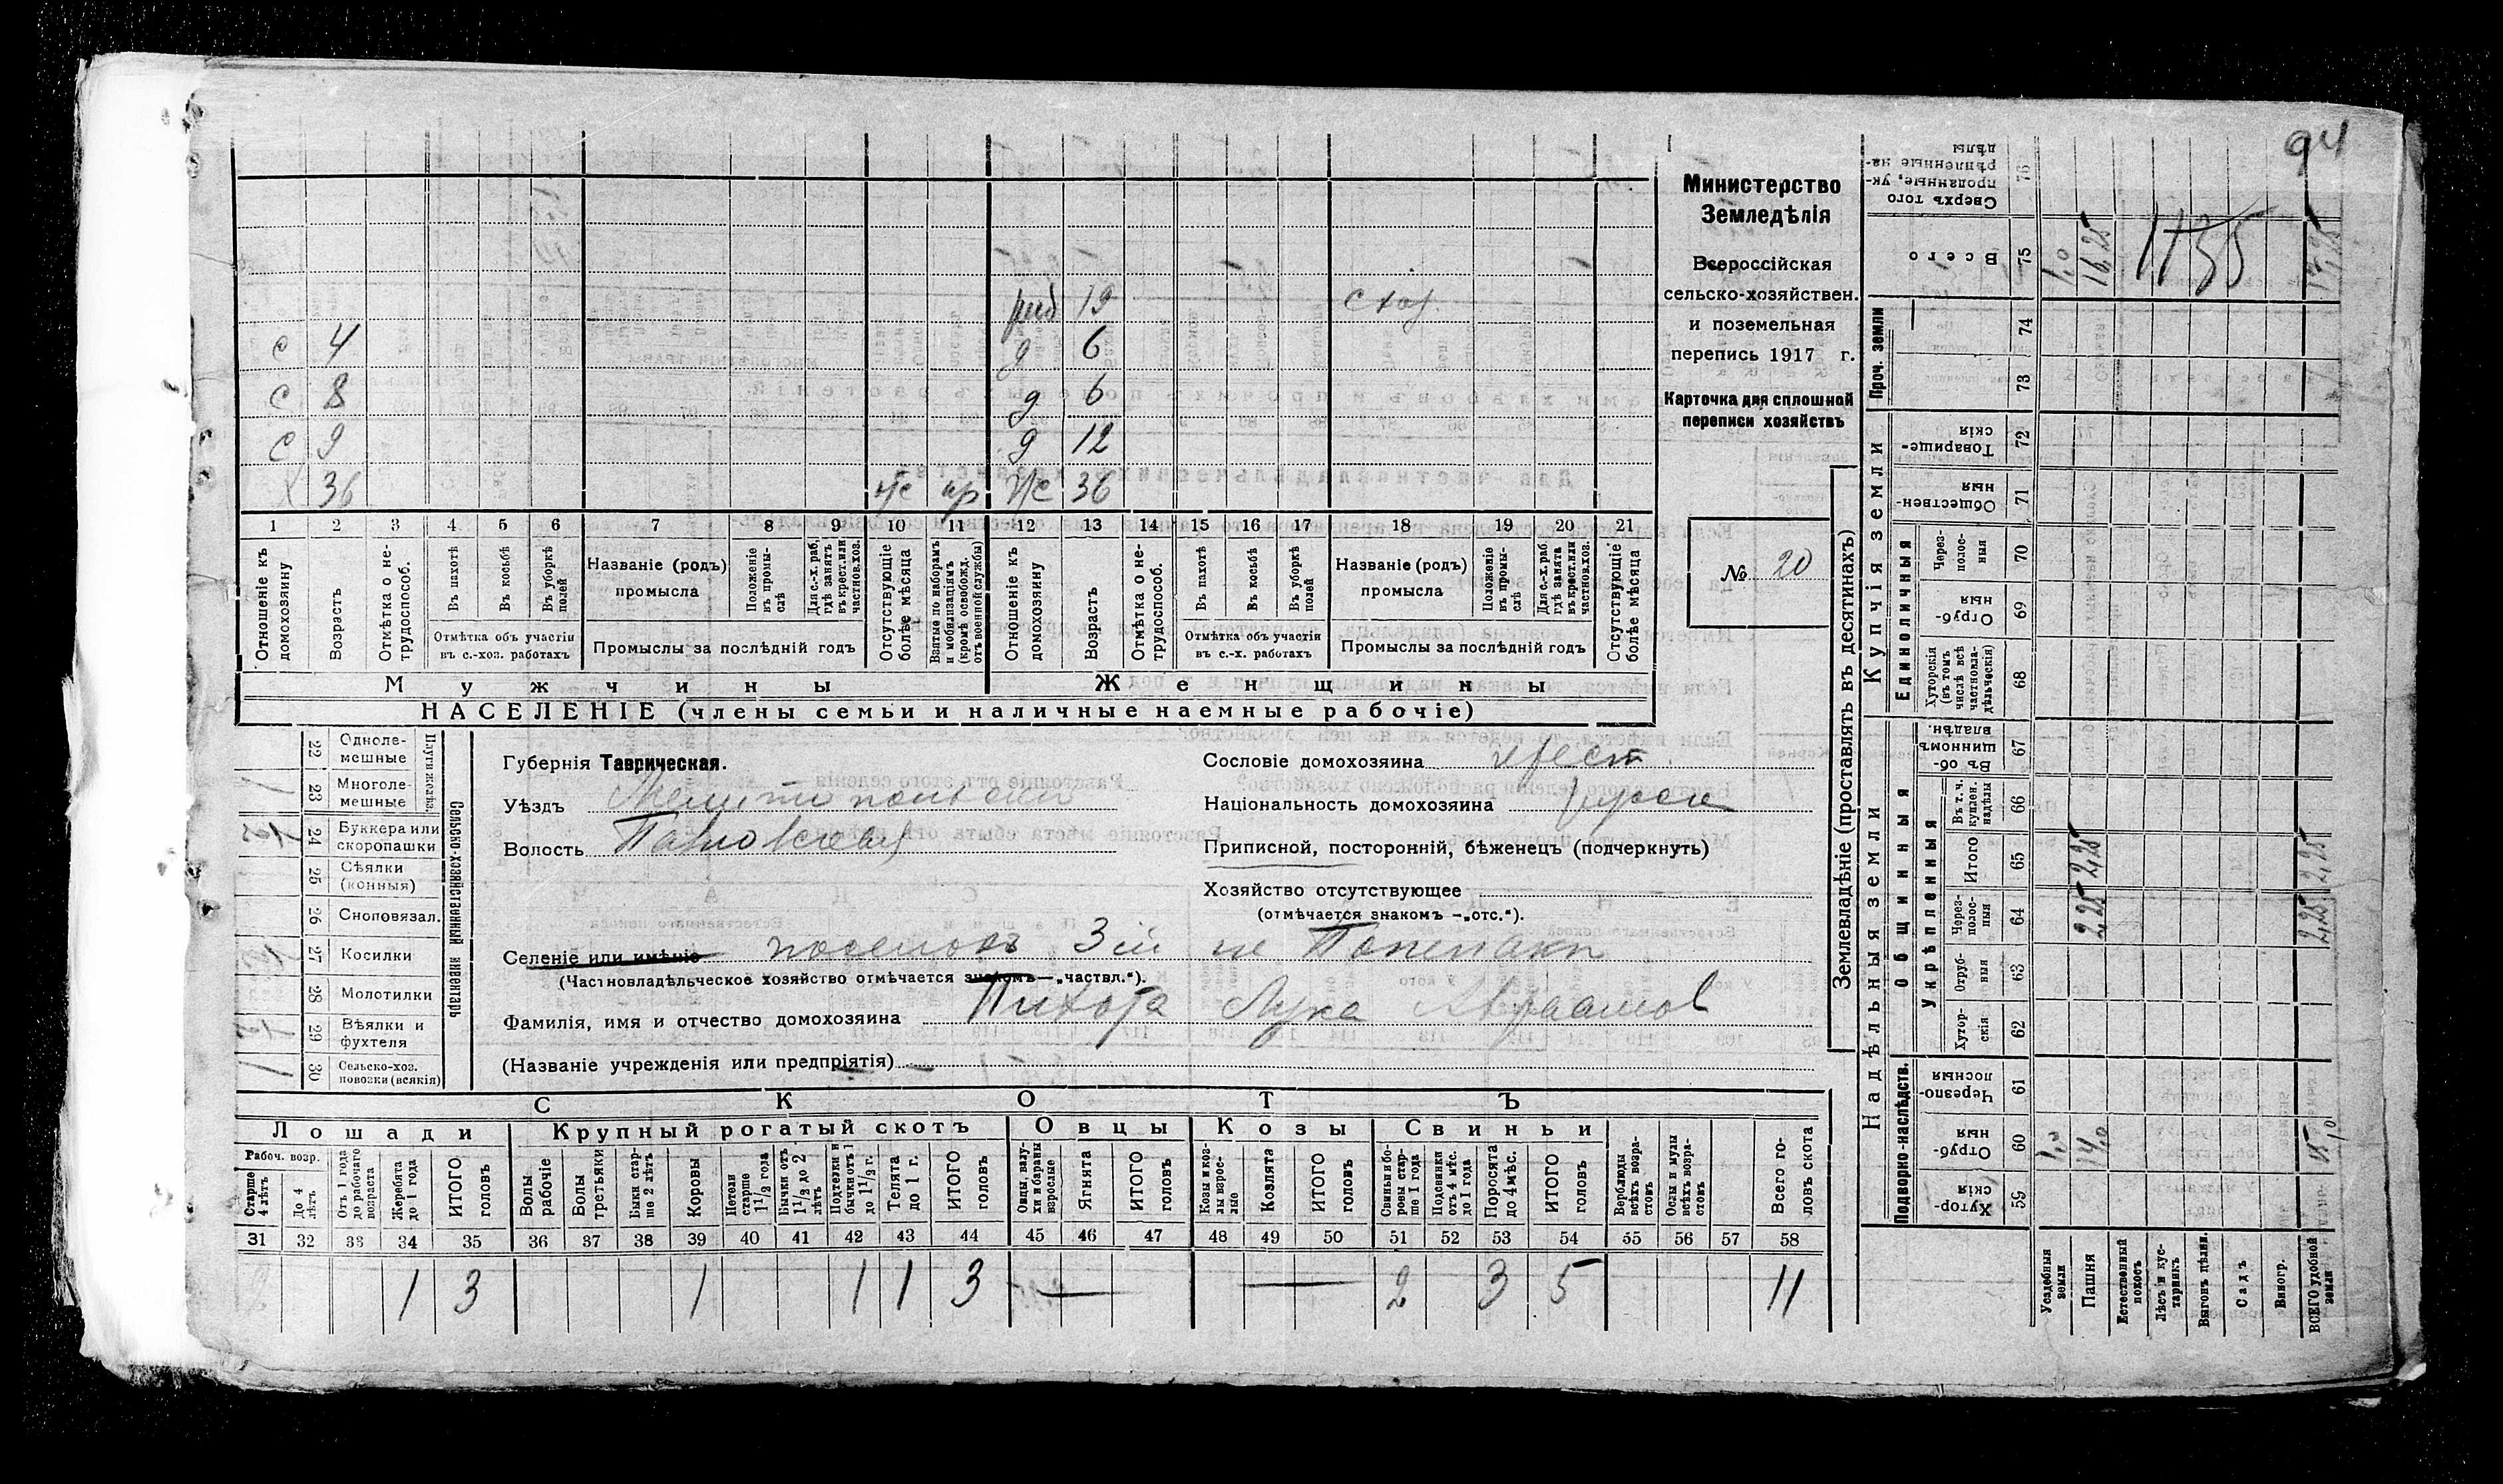 94
Министерство
Земледѣлія
Всероссійская
сельско-хозяйствен.
и поземельная
перепись 1917 г.
Карточка для сплошной
переписи хозяйствъ
№ 20
19
с 4 д 6
с 8 д 6
с 9 д 12
х 36 ж 36
1 2 3 4 5 6 7 8 9 10 11 12 13 14 15 16 17 18 19 20 21
Отношеніе къ домохозяину
Возрастъ
Отмѣтка о нетрудоспособ.
Въ пахотѣ
Въ косьбѣ
Въ уборкѣ полей
Отмѣтка объ участіи
въ с.-хоз. работахъ
Названіе (родъ)
промысла
Положеніе въ промыслѣ
Для с.-х. раб, гдѣ занятъ въ крест. или частнов. хоз.
Промыслы за послѣдній годъ
Отсутствующіе болѣе мѣсяца
Взятые по наборамъ и мобилизаціямъ (кромѣ освобожд. отъ военной службы)
Отношеніе къ домохозяину
Возрастъ
Отмѣтка о нетрудоспособ.
Въ пахотѣ
Въ косьбѣ
Въ уборкѣ полей
Отмѣтка объ участіи
въ с.-х. работахъ
Названіе (родъ)
промысла
Положеніе въ промыслѣ
Для с.-х. раб гдѣ занята въ крест. или частнов. хоз.
Промыслы за послѣдній годъ
Отсутствующіе болѣе мѣсяца
Мужчины Женщины
НАСЕЛЕНІЕ (члены семьи и наличные наемные рабочіе)
Сельско-хозяйственный инвентарь
22 Однолемешные
23 Многолемешные
24 Буккера или скоропашки
25 Сѣялки (конныя)
26 Сноповязал.
27 Косилки
28 Молотилки
29 Вѣялки и фухтеля
30 Сельско-хоз. повозки (всякія)
Губернія Таврическая.
Уѣздъ Мелитопольскій
Волость Павловская
Сословіе домохозяина крест.
Національность домохозяина
Приписной, посторонній, бѣженецъ (подчеркнуть)
Хозяйство отсутствующее
(отмѣчается знакомъ —„отс.“).
Селеніе или имѣніе поселокъ 3ій
(Частновладѣльческое хозяйство отмѣчается знакомъ—„частвл.“).
Фамилія, имя и отчество домохозяина Пихота Лука Авраамов
(Названіе учрежденія или предпріятія)
СКОТЪ
Лошади Крупный рогатый скотъ Овцы Козы Свиньи
Рабоч. возр.
Старше 4 лѣтъ
До 4 лѣтъ
Отъ 1 года до рабочаго возраста
Жеребята до 1 года
ИТОГО головъ
Волы рабочіе
Волы третьяки
Быки старше 2 лѣтъ
Коровы
Нетели старше 1½ года
Бычки отъ 1½ до 2 лѣтъ
Подтелки и бычки отъ 1 до 1½ г.
Телята до 1 г.
ИТОГО головъ
Овцы, валухи и бараны взрослые
Ягнята
ИТОГО головъ
Козы и козлы взрослые
Козлята
ИТОГО головъ
Свиньи и боровы старше 1 года
Подсвинки отъ 4 мѣс. до 1 года
Поросята до 4 мѣс.
ИТОГО головъ
Верблюды всѣхъ возрастовъ
Ослы и мулы всѣхъ возрастовъ
Всего головъ скота
31 32 33 34 35 36 37 38 39 40 41 42 43 44 45 46 47 48 49 50 51 52 53 54 55 56 57 58
1 3 1 1 1 3 — — 2 3 5 11
Землевладѣніе (проставлять въ десятинахъ)
Сверхъ того проданные, укрѣпленные надѣлы 76
Всего 75 1,0 16,25 17,25
Проч. земли 74 73
Купчія земли
Товарищескія 72
Общественныя 71
Единоличныя
Черезполосныя 70
Отрубныя 69
Хуторскія (въ томъ числѣ всѣ частновладѣльческія) 68
Надѣльныя земли
Общинныя
Въ общинномъ владѣн. 67
Укрѣпленныя
Въ т. ч. куплен. надѣлы 66
Итого 65 2,25 2,25
Черезполосныя 64 2,25 2,25
Отрубныя 63
Хуторскія 62
Подворно-наслѣдств.
Черезполосныя 61
Отрубныя 60 1,0 14,0
Хуторскія 59
Усадебныя земли
Пашня
Естественный покосъ
Лѣсъ и кустарникъ
Выгонъ цѣлин.
Садъ
Виногр.
ВСЕГО удобной земли